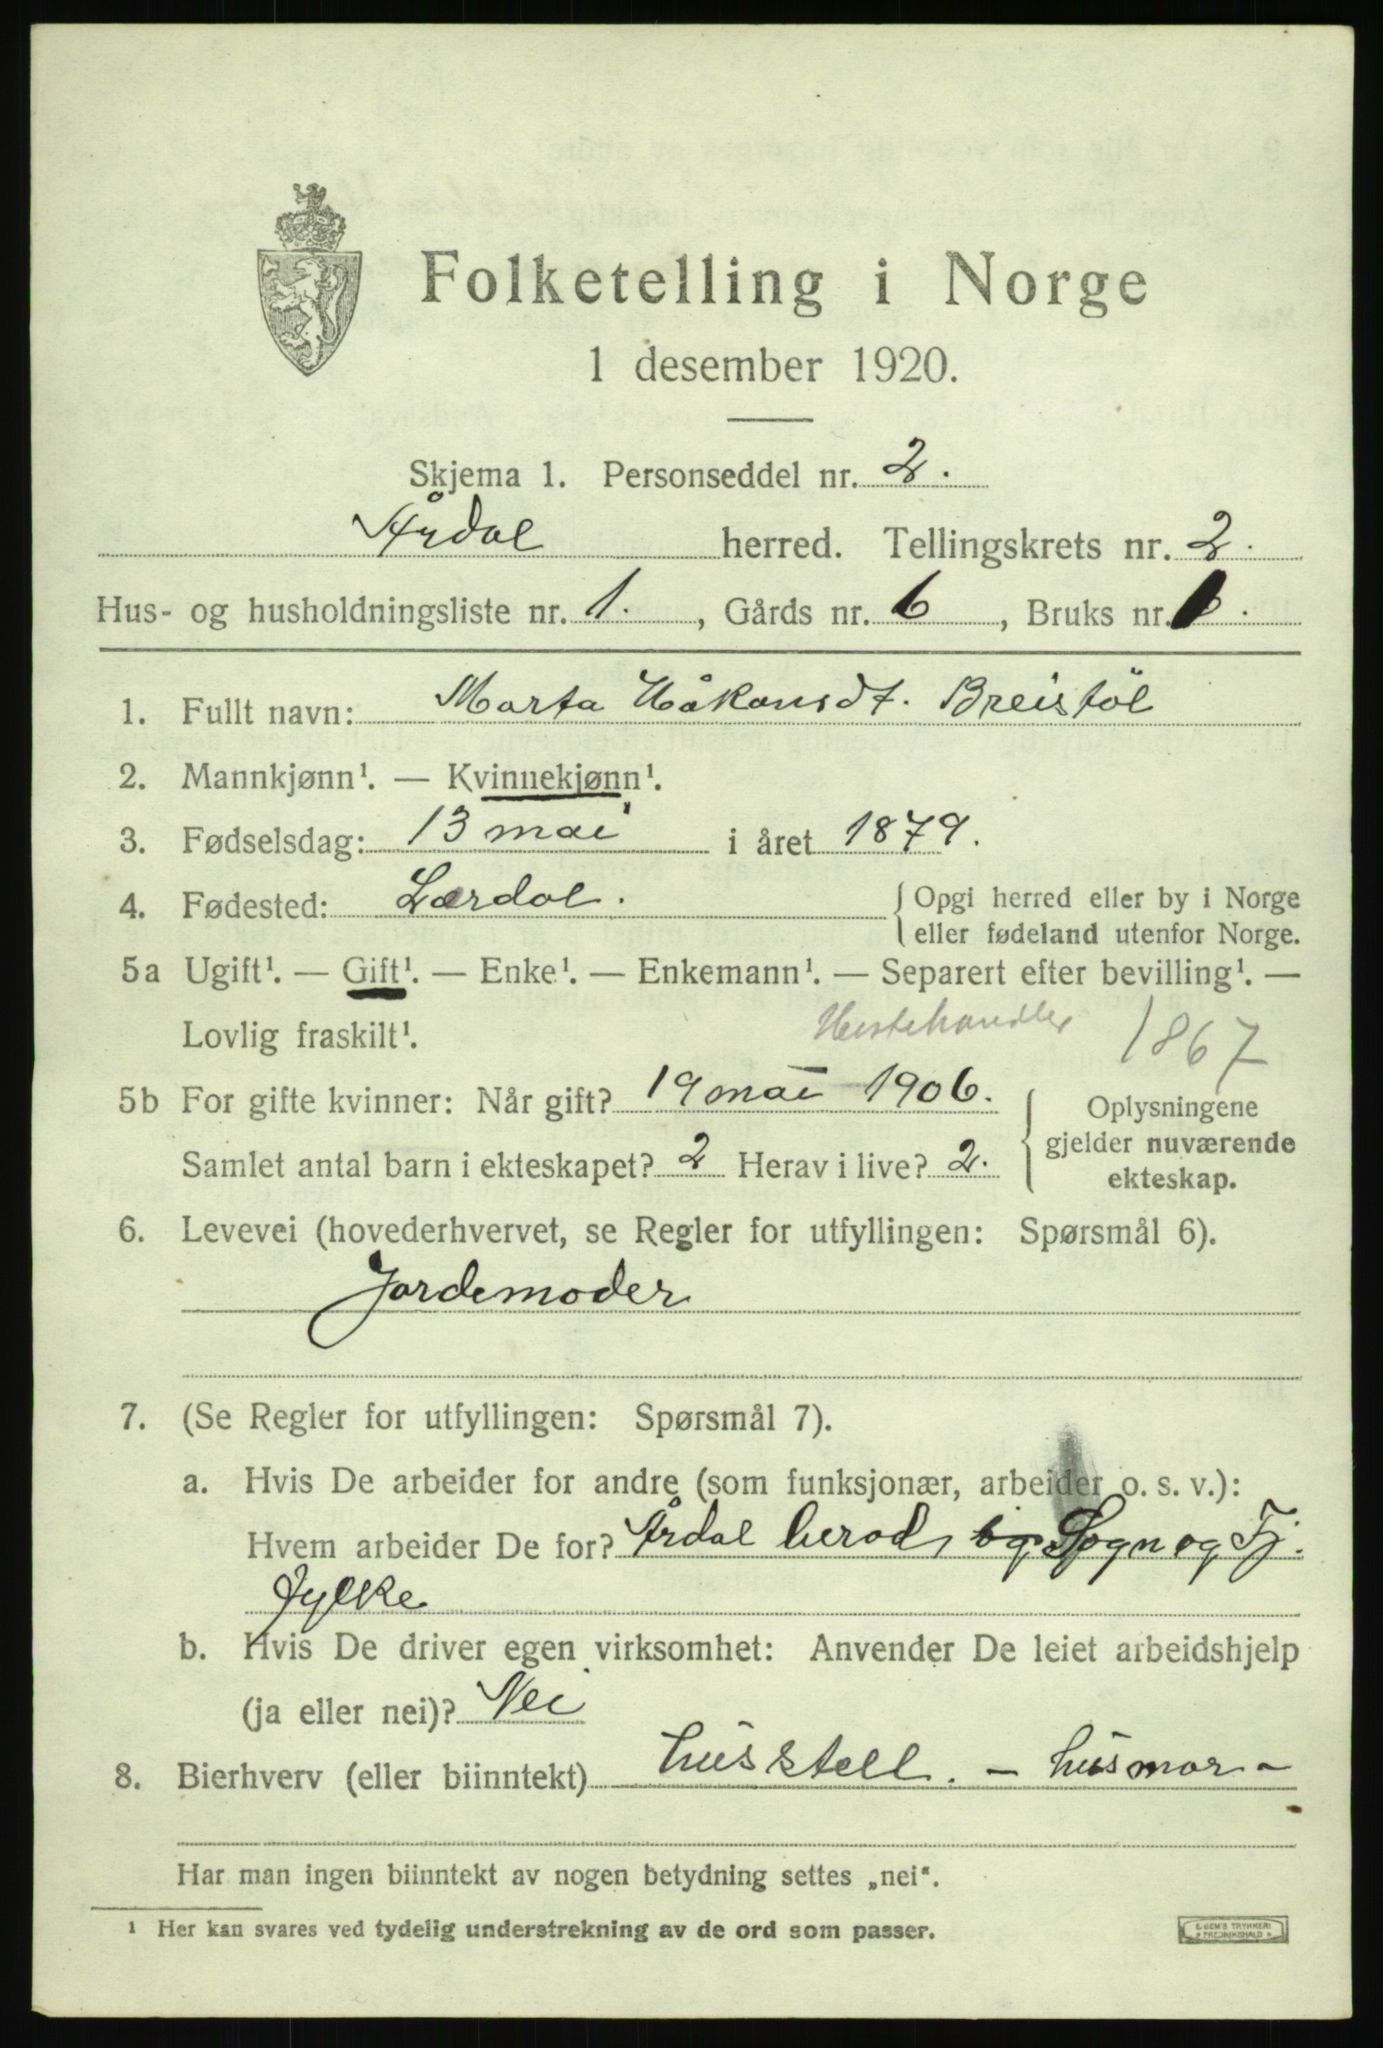 Folketelling i Norge
1 desember 1920.
Skjema 1. Personseddel nr. 2.
Årdal herred. Tellingskrets nr. 2.
Hus- og husholdningsliste nr. 1. , Gårds nr. 6 , Bruks nr. .
1. Fullt navn: Marta Håkonsdt. Breistöl
2. Mannkjønn¹. — Kvinnekjønn¹.
3. Fødselsdag: 13 mai i året 1879.
4. Fødested: Lærdal. { Opgi herred eller by i Norge
eller fødeland utenfor Norge.
5a Ugift¹. — Gift¹. — Enke¹. — Enkemann¹. — Separert efter bevilling¹. —
Lovlig fraskilt¹. Hestehandler 1867
5b For gifte kvinner: Når gift? 19 mai 1906. { Oplysningene
gjelder nuværende
Samlet antal barn i ekteskapet? 2 Herav i live? 2.
ekteskap.
6. Levevei (hovederhvervet, se Regler for utfyllingen: Spørsmål 6).
Jordemoder
7. (Se Regler for utfyllingen: Spørsmål 7).
a. Hvis De arbeider for andre (som funksjonær, arbeider o. s. v.):
Hvem arbeider De for? Årdal herad og Sogn og Fj.
Fylke
b. Hvis De driver egen virksomhet: Anvender De leiet arbeidshjelp
(ja eller nei)? Nei
8. Bierhverv (eller biinntekt) husstell. — husmor —
Har man ingen biinntekt av nogen betydning settes „nei“.
¹ Her kan svares ved tydelig understrekning av de ord som passer.
E. SEM'S TRYKKERI
* FREDRIKSHALD *